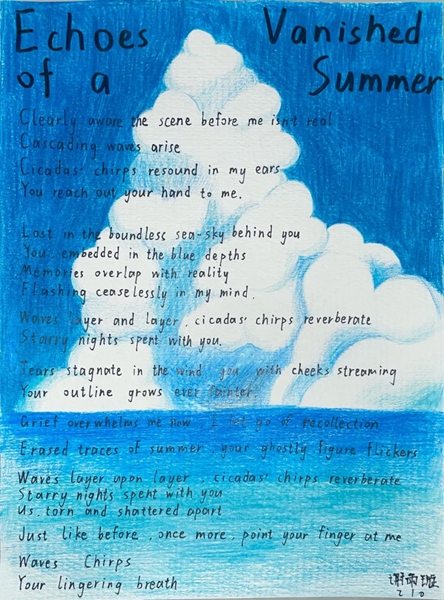 Echoes of a Vanished Summer
Clearly aware the scene before me isn't real
Cascading waves arise
Cicadas' chirps resound in my ears
You reach out your hand to me.
Lost in the boundless sea-sky behind you
You, embedded in the blue depths
Memories overlap with reality
Flashing ceaselessly in my mind.
Waves layer and layer, cicadas' chirps reverberate
Starry nights spent with you.
Tears stagnate in the wind, you with cheeks streaming
Your outline grows ever fainter.
Grief overwhelms me now, I let go of recollection
Erased traces of summer, your ghostly figure flickers
Waves layer upon layer, cicadas' chirps reverberate
Starry nights spent with you
Us, torn and shattered apart
Just like before, once more, point your finger at me
Waves Chirps
Your lingering breath
210